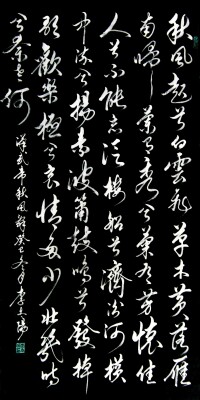 秋風起兮白雲飛草木黃落雁
南歸蘭有秀兮菊有芳懷佳
人兮不能忘泛樓船兮濟汾河橫
中流兮揚素波簫鼓鳴兮發棹
歌歡樂極兮哀情多少壯幾時
兮奈老何
漢武帝秋風辭癸巳冬月李